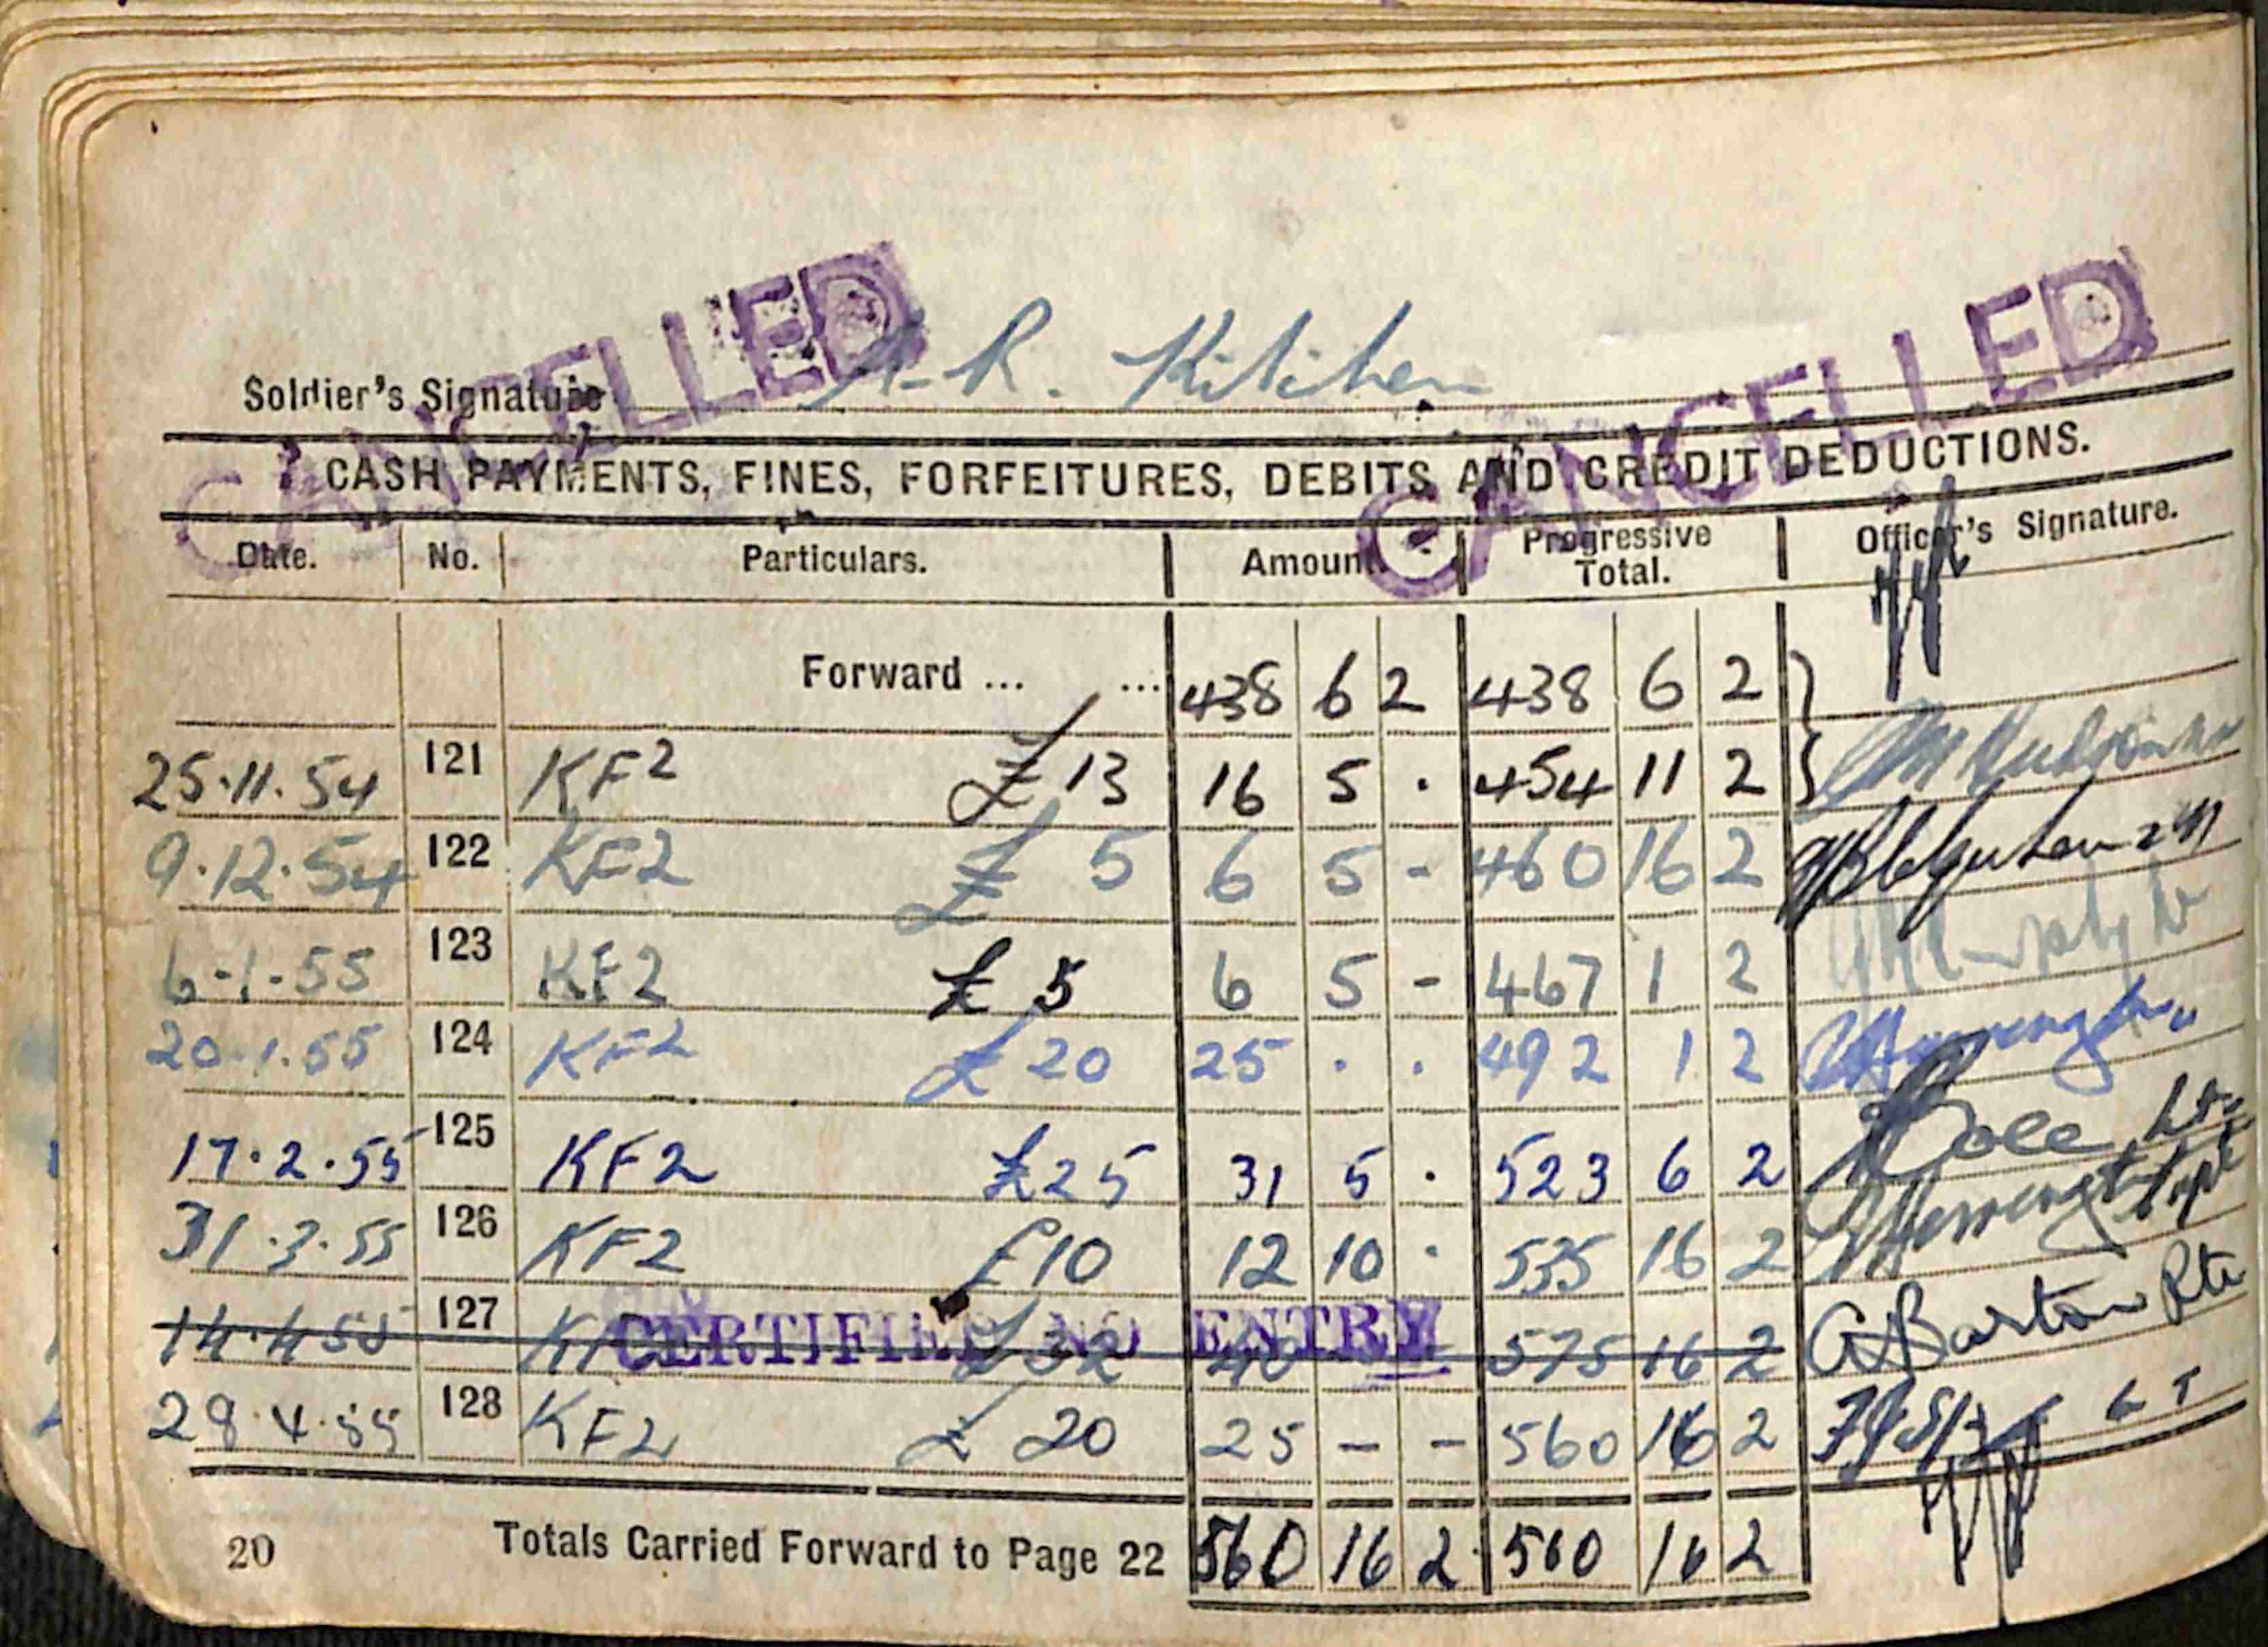 CANCELLED
CANCELLED
Soldier's Signature A-R. Kitchen
CASH PAYMENTS, FINES, FORFEITURES, DEBITS AND CREDIT DEDUCTIONS.
Date. No. Particulars. Amount. Progressive Total. Officer's Signature.
Forward ... ... 438 6 2 438 6 2
25.11.54 121 KF2 £13 16 5 . 454 11 2
9.12.54 122 KF2 £ 5 6 5 - 460 16 2
6-1-55 123 KF2 £ 5 6 5 - 467 1 2
20.1.55 124 KF2 £20 25 . . 492 1 2
17.2.55 125 KF2 £25 31 5 . 523 6 2 Cole Lt
31.3.55 126 KF2 £10 12 10 . 535 16 2
14.4.55 127 KF2 £32 40 575 16 2 Barton
CERTIFIED NO ENTRY
28.4.55 128 KF2 £ 20 25 - - 560 16 2 LT
20 Totals Carried Forward to Page 22 560 16 2 560 16 2